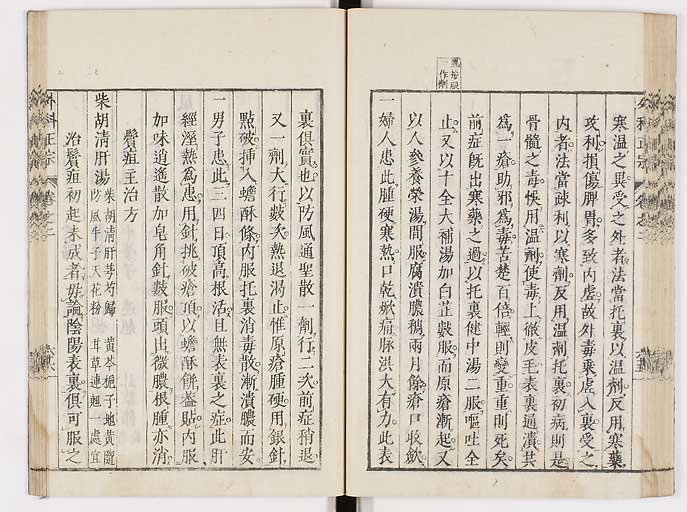 寒溫之異受之外者法當托裏以溫劑反用寒藥
攻利損傷脾胃多致內虛故外毒乘虛入裏受之
內者法當疎利以寒劑反用溫劑托裏初病則是
骨髓之毒悞用溫劑使毒上徹皮毛表裏通潰共
為一瘡助邪為毒苦楚百倍輕則變重重則死矣
前症既出寒藥之過以托裏健中湯二服嘔吐全
止又以十全大補湯加白芷數服而原瘡漸起又
以人參養榮湯間服腐潰膿稠兩月餘瘡口收歛
一婦人患此腫硬寒熱口乾嗽痛脉洪大有力此表
裏俱實也以防風通聖散一劑行二次前症稍退
又一劑大行數次熱退渴止惟原瘡腫硬用銀針
點破插入蟾酥條內服托裏消毒散漸潰膿而安
一男子患此三四日頂高根活且無表裏之症此肝
經溼熱為患用針挑破瘡頂以蟾酥餅盖貼內服
加味逍遙散加皂角針數服頭出微膿根腫亦消
鬢疽主治方
柴胡清肝湯
柴胡清肝芎芍歸 黃芩梔子地黃隨
防風牛子天花粉 甘草連翹一處宜
治鬢疽初起未成者毋論陰陽表裏俱可服之
外科正宗
卷之二
外科正宗
卷之二
一作劑